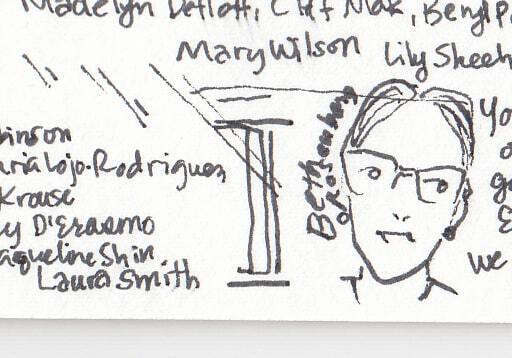 Madelyn Detloff, Cliff Mak, Beryl P
Mary Wilson
Lily Sheeh
inson
aria Lojo-Rodriguez
Krause
y D'Erasmo
aqueline Shin
Laura Smith
Beth
Rosenberg
Yo
we